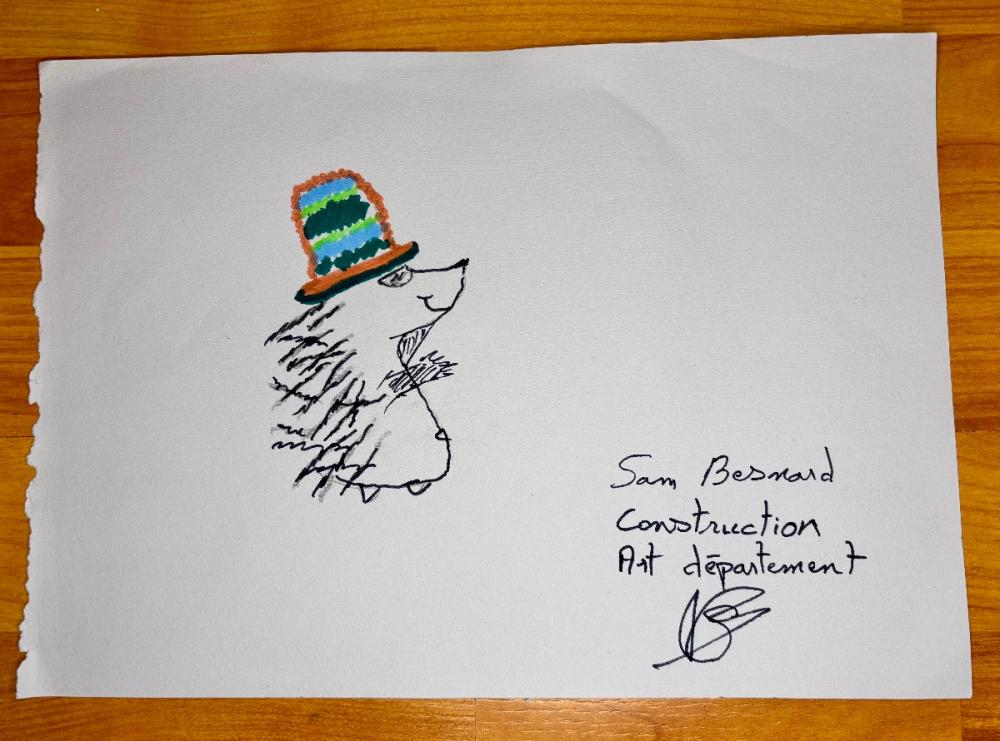 Sam Besnard
Construction
Art département